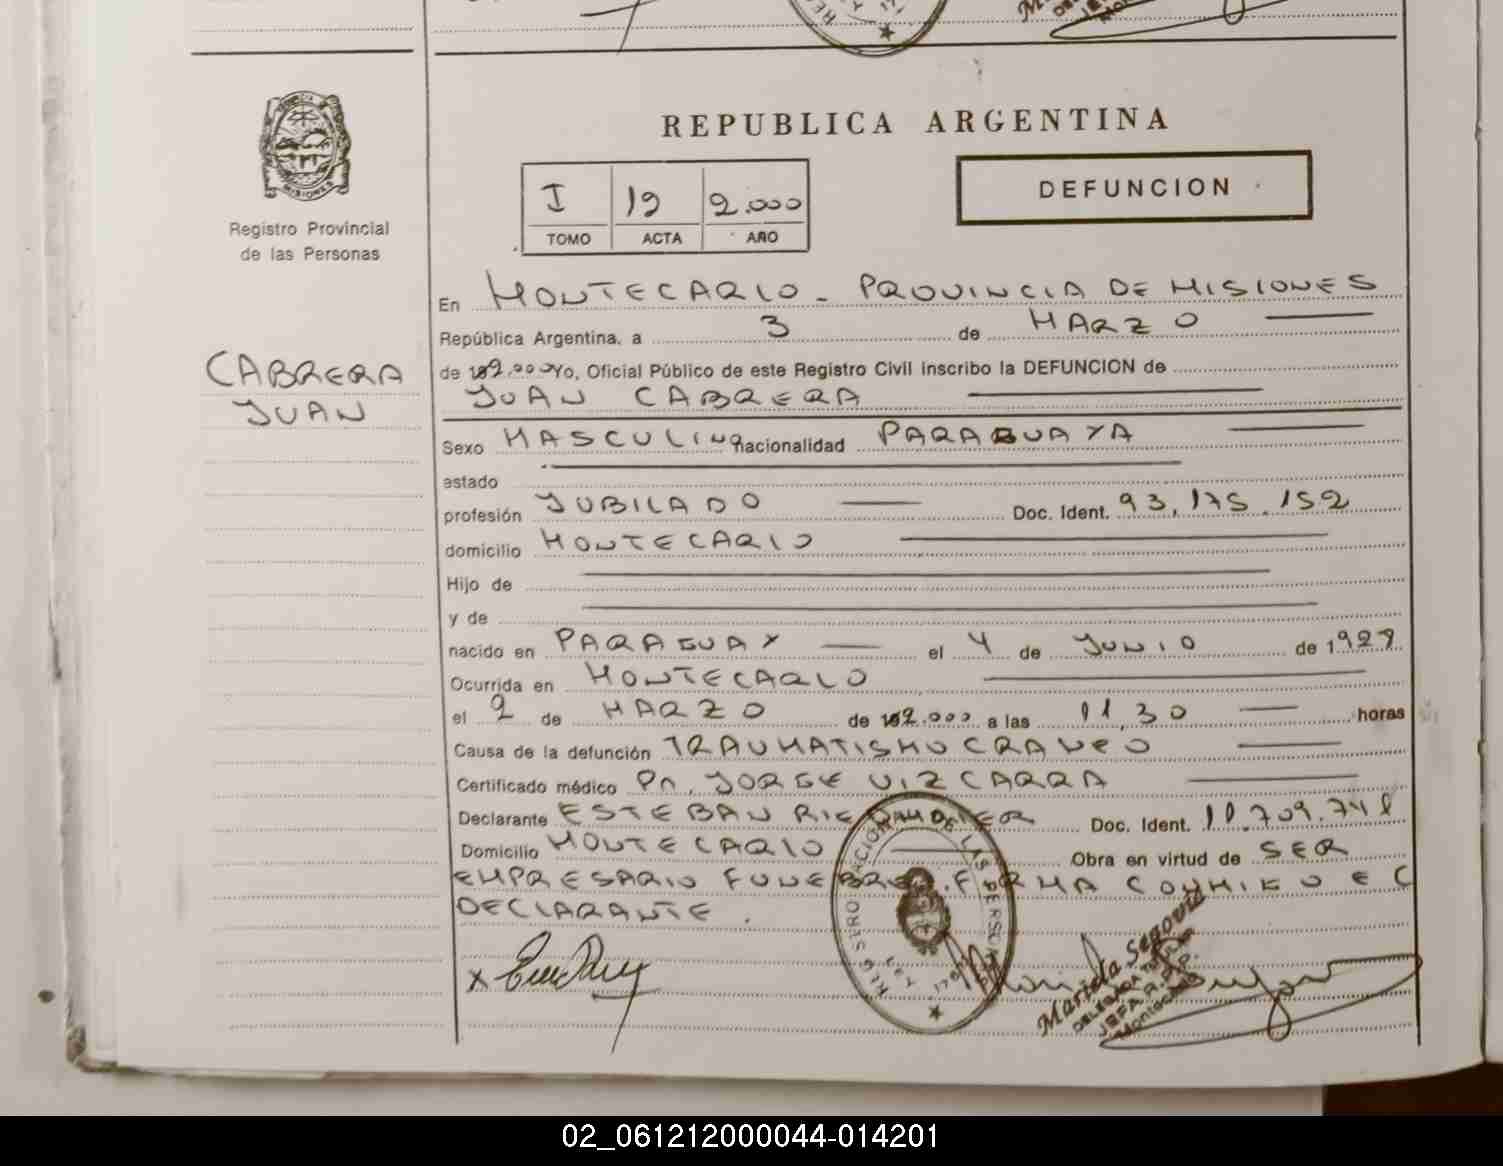 REPUBLICA ARGENTINA
I 19 2.000
TOMO ACTA AÑO
DEFUNCION
MISIONES
Registro Provincial
de las Personas
CABRERA
JUAN
En MONTECARLO - PROVINCIA DE MISIONES
República Argentina, a 3 de MARZO
de 2.000 Yo, Oficial Público de este Registro Civil inscribo la DEFUNCION de
JUAN CABRERA
Sexo MASCULINO nacionalidad PARAGUAYA
estado
profesión JUBILADO Doc. Ident. 93.175.152
domicilio MONTECARLO
Hijo de
y de
nacido en PARAGUAY el 4 de JUNIO de 1927
Ocurrida en MONTECARLO
el 2 de MARZO de 2.000 a las 11,30 horas
Causa de la defunción TRAUMATISMO CRANEO
Certificado médico Dr. JORGE VIZCARRA
Declarante ESTEBAN Doc. Ident. 11.709.741
Domicilio MONTECARLO Obra en virtud de SER
EMPRESARIO FUNEBRE. FIRMA CONMIGO EL
DECLARANTE.
Mariela Segovia
DELEGADA TITULAR
JEFA R.P.P.
Montecarlo
02_061212000044-014201